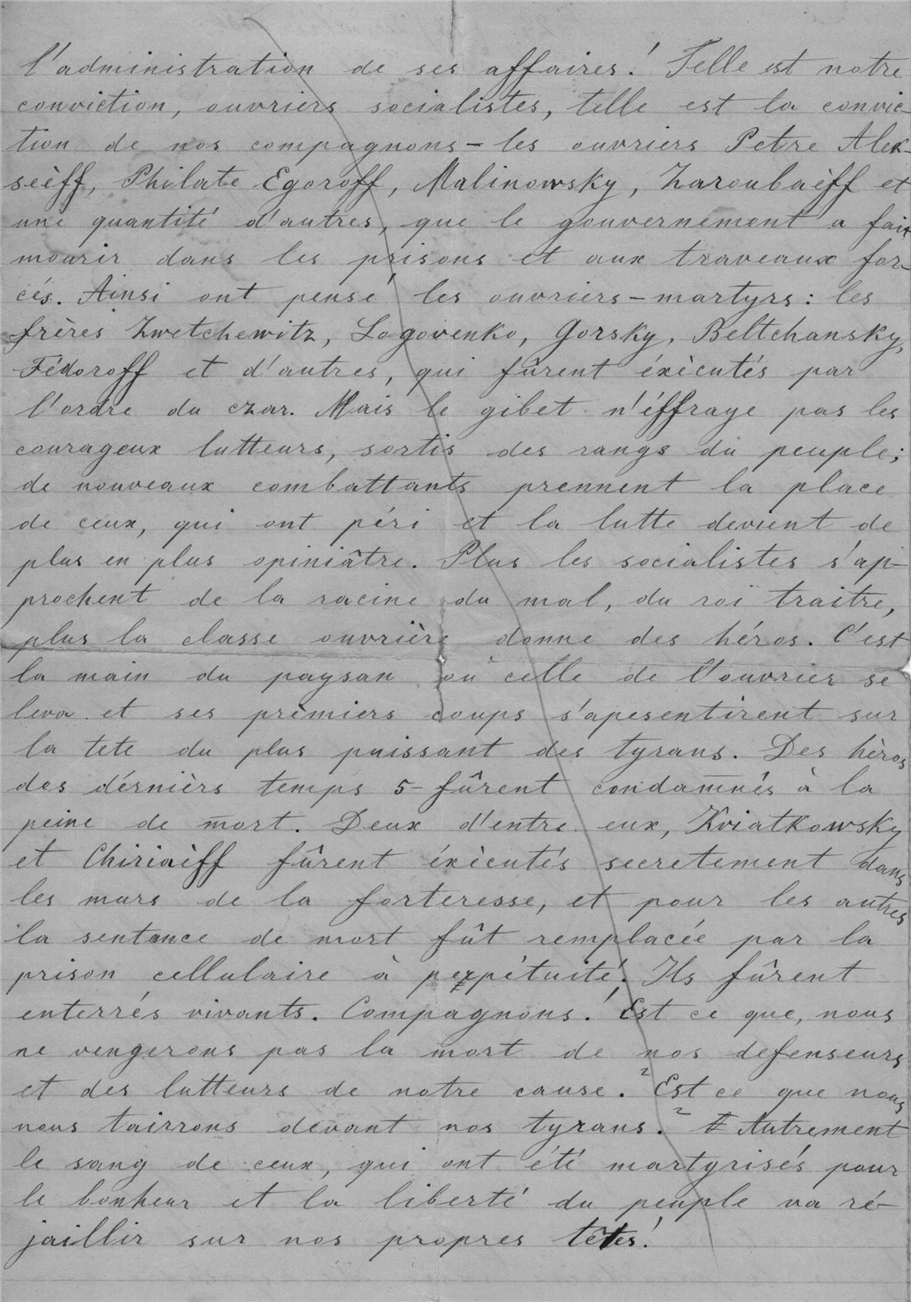 l'administration de ses affaires! Telle est notre
conviction, ouvriers socialistes, telle est la convic
tion de nos compagnons – les ouvriers Petre Alek-
sèèff, Philate Egoroff, Malinowsky, Zaroubaèff et
une quantité d'autres, que le gouvernement a fait
mourir dans les prisons et aux traveaux for-
cés. Ainsi ont pensé les ouvriers – martyrs: les
frères Zwetchewitz, Logovenko, Gorsky, Beltchansky,
Fédoroff et d'autres, qui fûrent éxècutés par
l'ordre du czar. Mais le gibet n'éffraye pas les
courageux lutteurs, sortis des rangs du peuple;
de nouveaux combattants prennent la place
de ceux, qui ont péri et la lutte devient de
plus en plus opiniâtre. Plus les socialistes s'ap-
prochent de la racine du mal, du roi traitre,
plus la classe ouvrière donne des héros. C'est
la main du paysan où celle de l'ouvrier se
leva et ses prèmiers coups s'apesentirent sur
la tete du plus puissant des tyrans. Des hèros
des dérnièrs temps 5 – fûrent condamnés à la
peine de mort. Deux d'entre eux, Kviatkowsky
et Chiriaèff fûrent éxècutés secretement dans
les murs de la forteresse, et pour les autres
la sentance de mort fût remplacée par la
prison cellulaire à perpétuité. Ils fûrent
enterrés vivants. Compagnons! Est ce que, nous
ne vengerons pas la mort de nos defenseurs
et des lutteurs de notre cause.? Est ce que nous
nous tairrons devant nos tyrans.? Autrement
le sang de ceux, qui ont été martyrisés pour
le bonheur et la liberté du peuple va ré-
jaillir sur nos propres têtes!